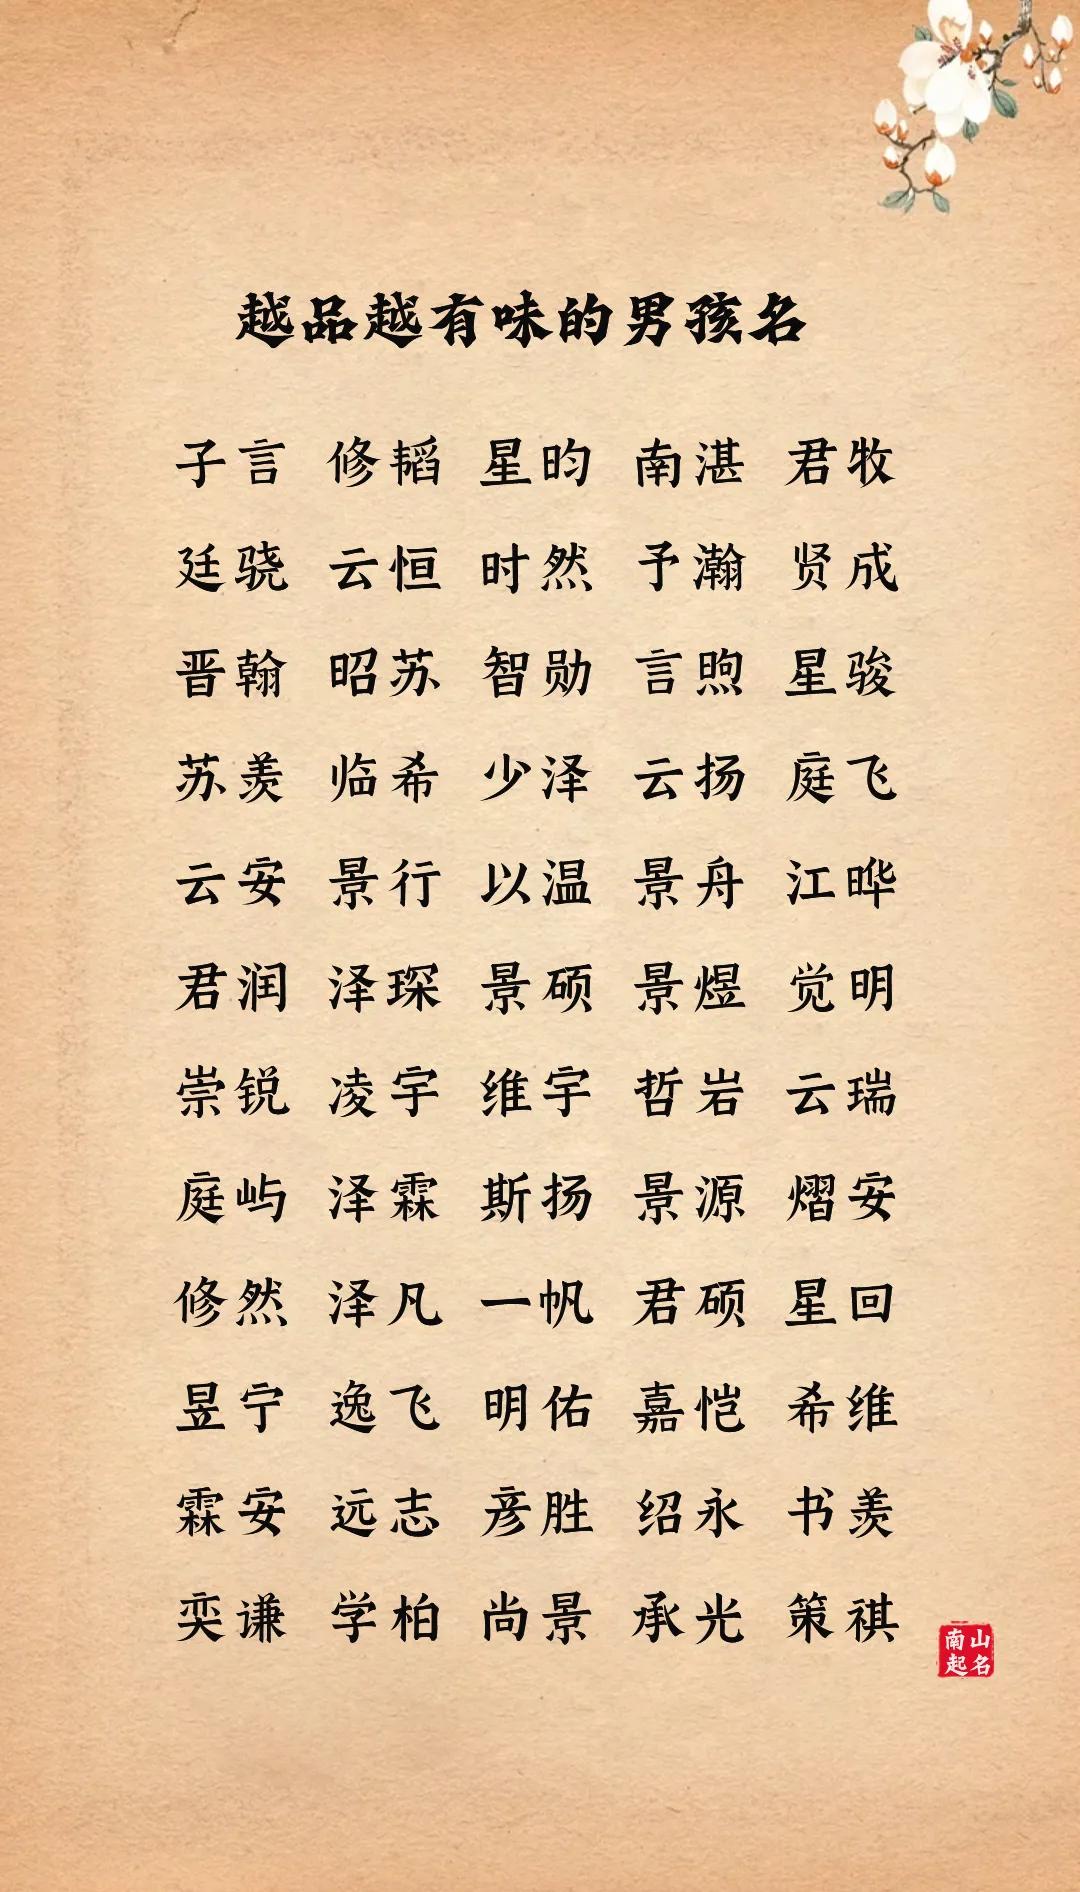 越品越有味的男孩名
子言 修韬 星昀 南湛 君牧
廷骁 云恒 时然 予瀚 贤成
晋翰 昭苏 智勋 言煦 星骏
苏羡 临希 少泽 云扬 庭飞
云安 景行 以温 景舟 江晔
君润 泽琛 景硕 景煜 觉明
崇锐 凌宇 维宇 哲岩 云瑞
庭屿 泽霖 斯扬 景源 熠安
修然 泽凡 一帆 君硕 星回
昱宁 逸飞 明佑 嘉恺 希维
霖安 远志 彦胜 绍永 书羡
奕谦 学柏 尚景 承光 策祺
南山
起名